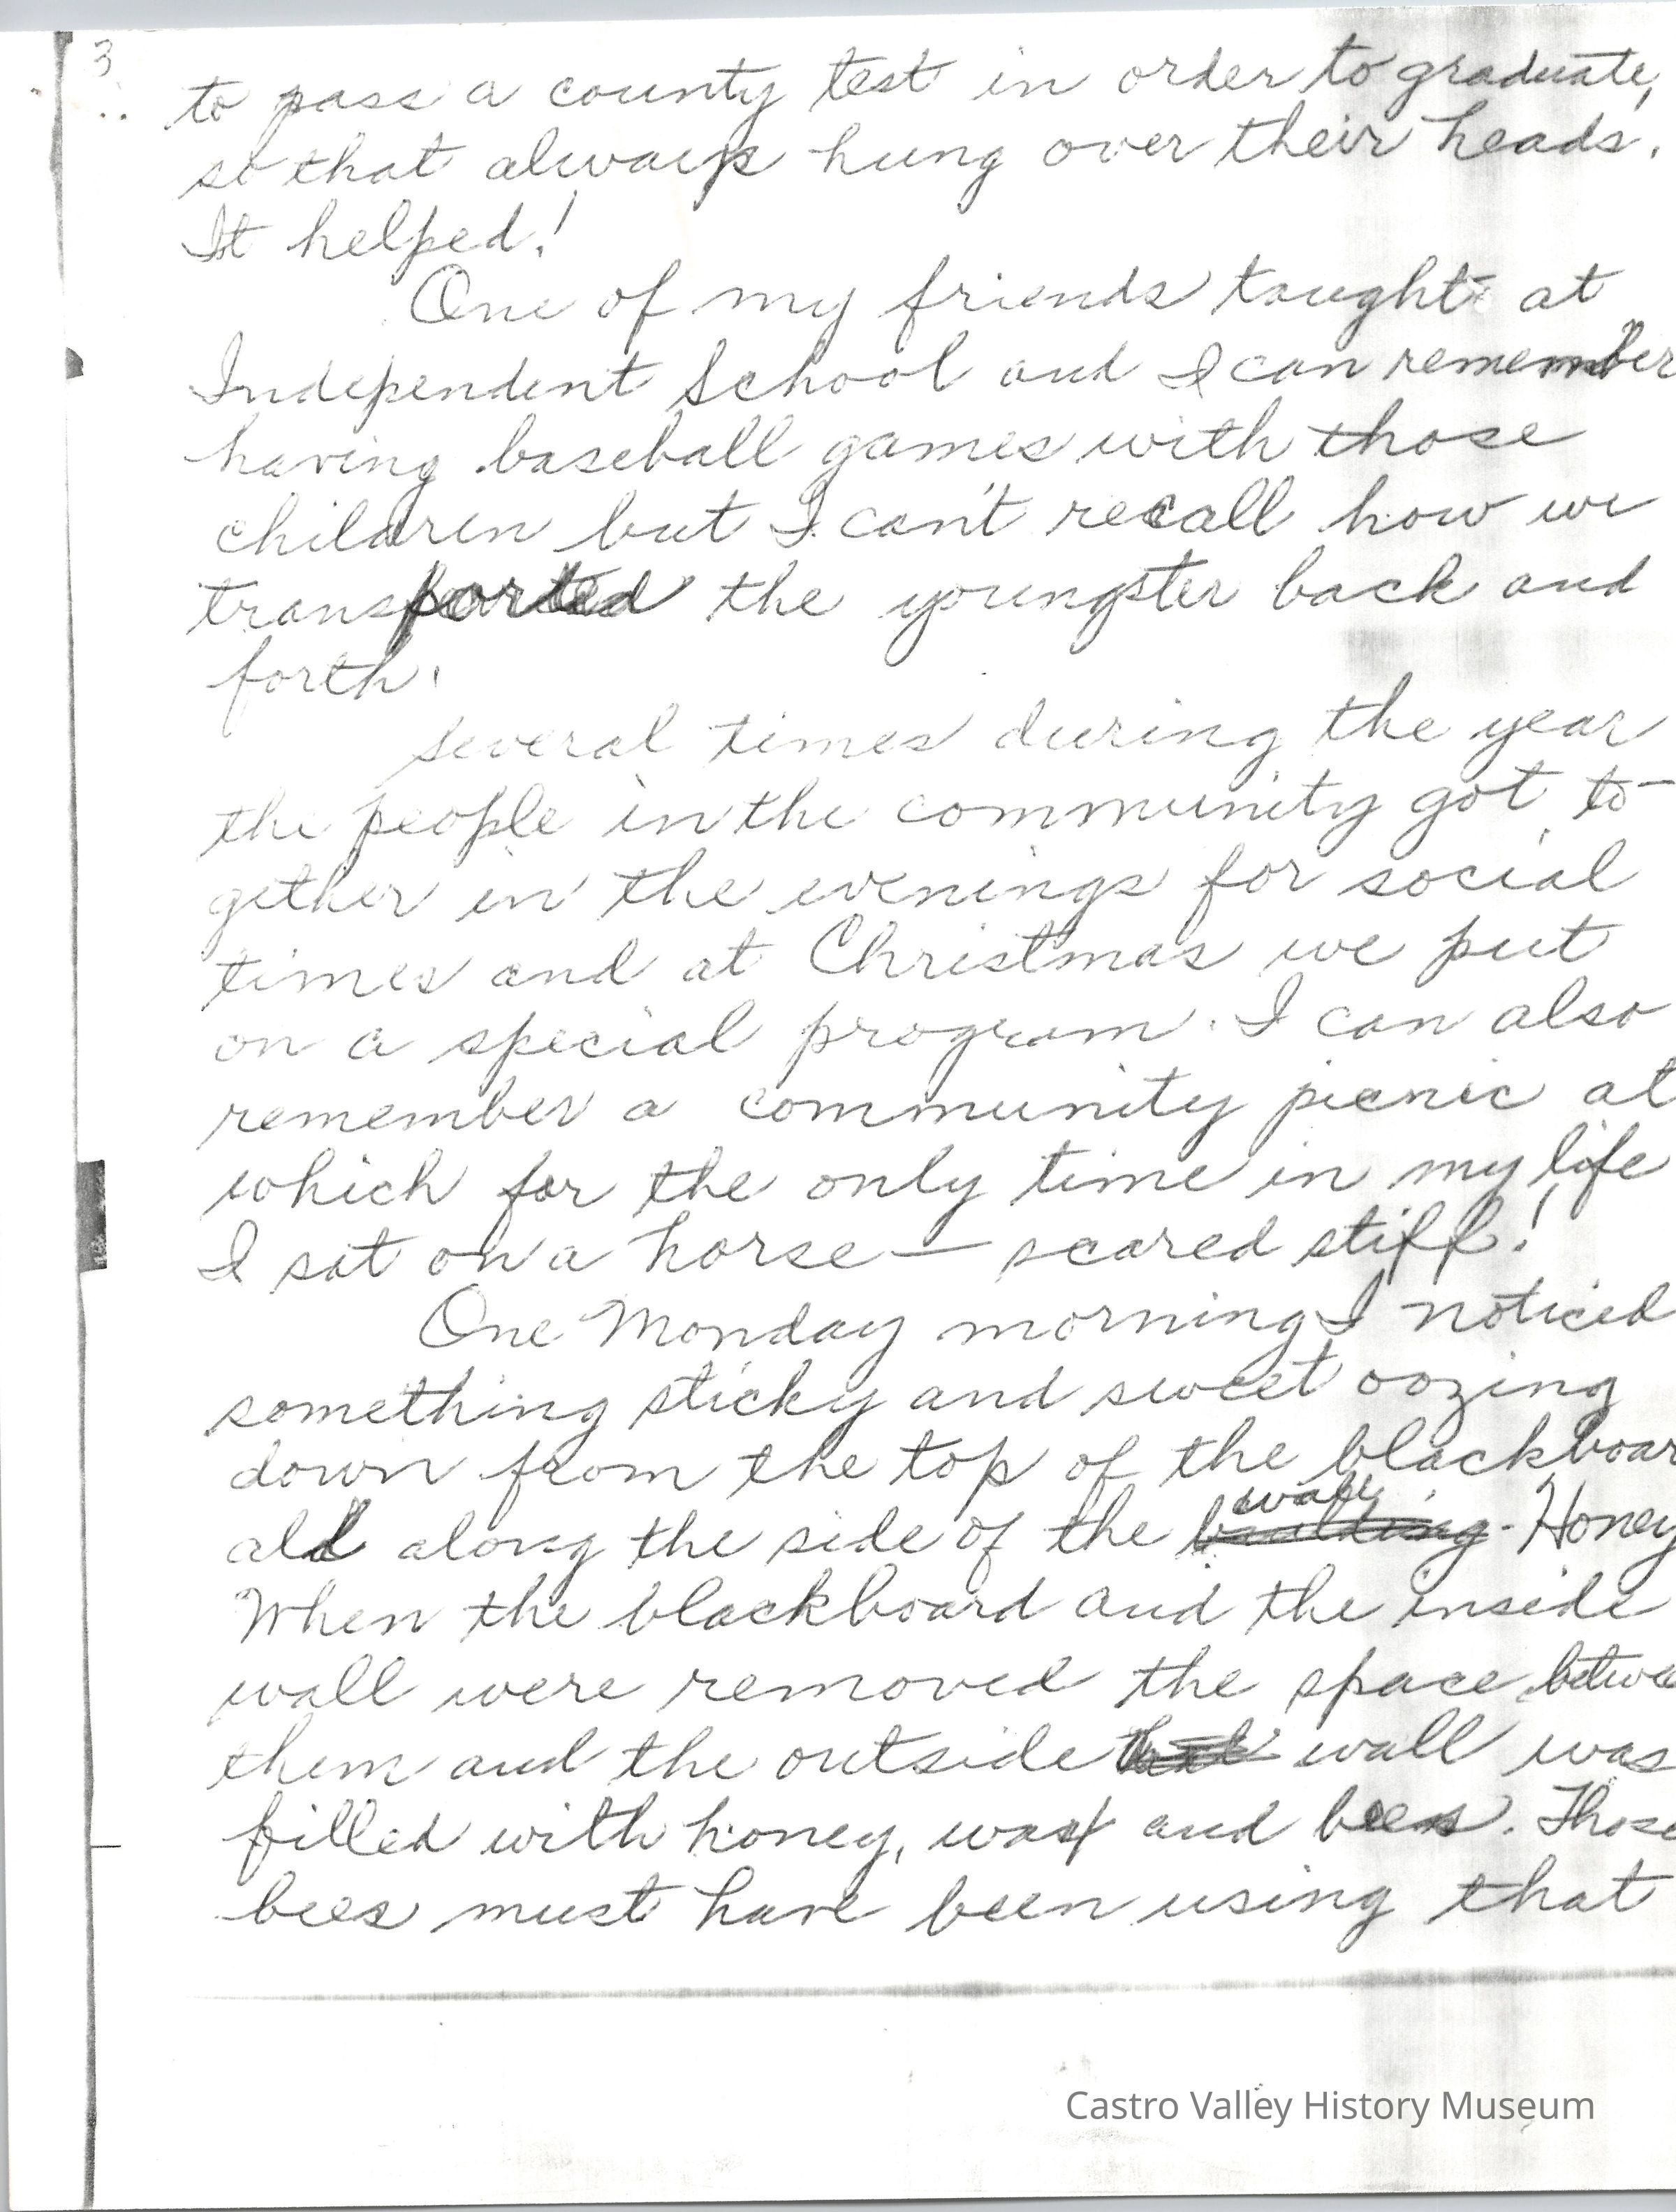 3
to pass a county test in order to graduate,
so that always hung over their heads.
It helped!
One of my friends taught at
Independent School and I can remember
having baseball games with those
children but I can't recall how we
transported the youngster back and
forth.
Several times during the year
the people in the community got to-
gether in the evenings for social
times and at Christmas we put
on a special program. I can also
remember a community picnic at
which for the only time in my life
I sat on a horse — scared stiff!
One Monday morning I noticed
something sticky and sweet oozing
down from the top of the blackboar
all along the side of the building wall - Honey
When the blackboard and the inside
wall were removed the space betwee
them and the outside wall was
filled with honey, wax and bees. Those
bees must have been using that
Castro Valley History Museum